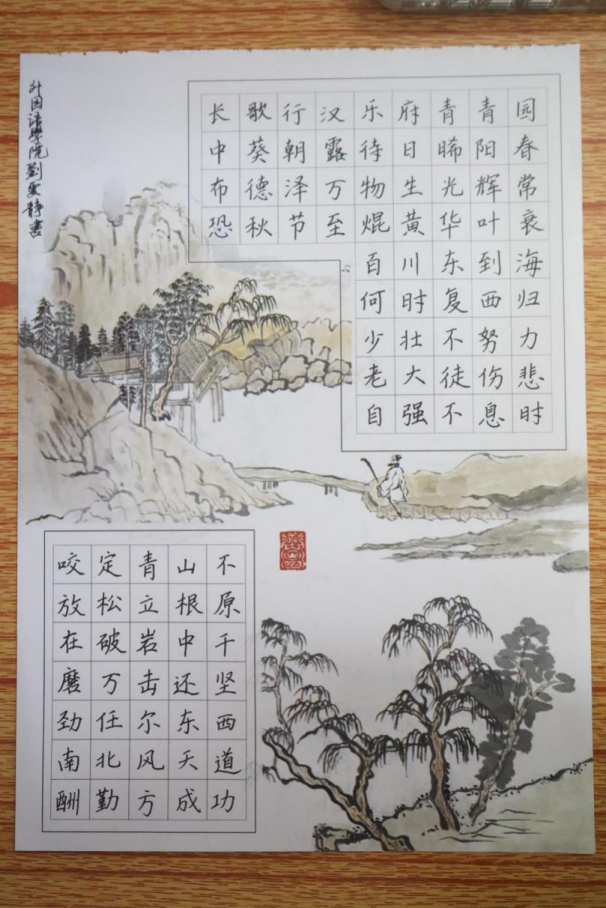 外国语學院劉雯静書
长歌行汉乐府青青园
中葵朝露待日晞阳春
布德泽万物生光辉常
恐秋节至焜黄华叶衰
百川东到海
何时复西归
少壮不努力
老大徒伤悲
自强不息时
咬定青山不
放松立根原
在破岩中千
磨万击还坚
劲任尔东西
南北风天道
酬勤方成功